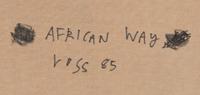 AFRICAN WAY
ross 85